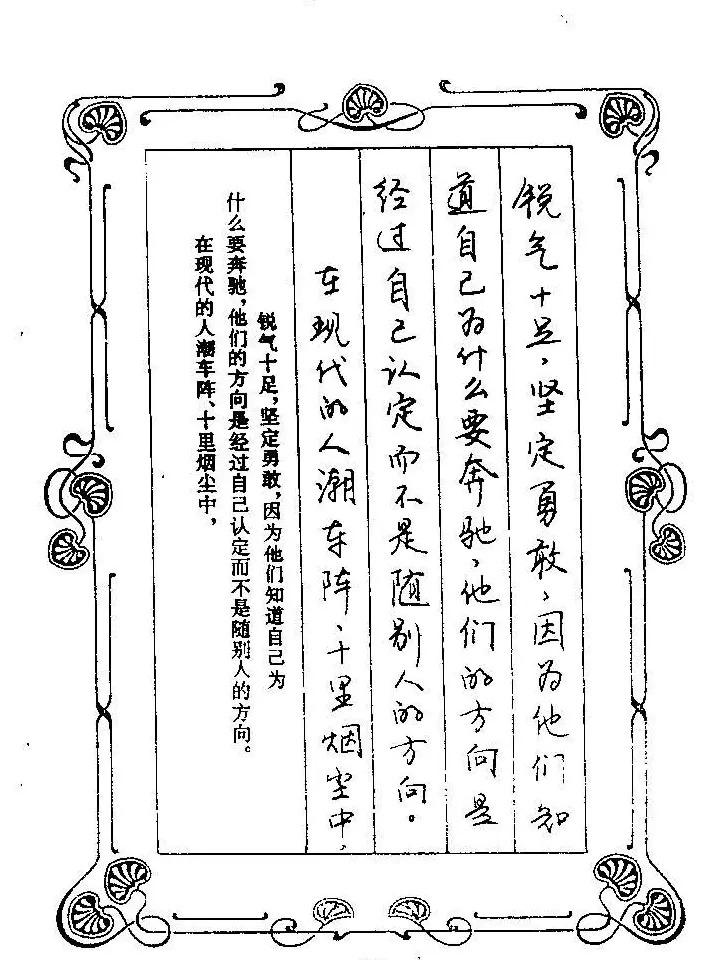 锐气十足,坚定勇敢,因为他们知
道自己为什么要奔驰,他们的方向是
经过自己认定而不是随别人的方向。
在现代的人潮车阵、十里烟尘中,
锐气十足,坚定勇敢,因为他们知道自己为
什么要奔驰,他们的方向是经过自己认定而不是随别人的方向。
在现代的人潮车阵、十里烟尘中,